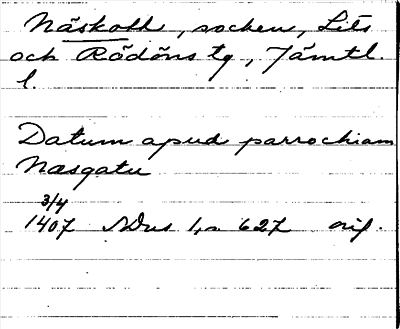 Näskott, socken, Lits
och Rödöns tg, Jämtl.
l.
Datum apud parrochiam
Nasgatu
3/4
1407 SDns 1, n 627 orig.